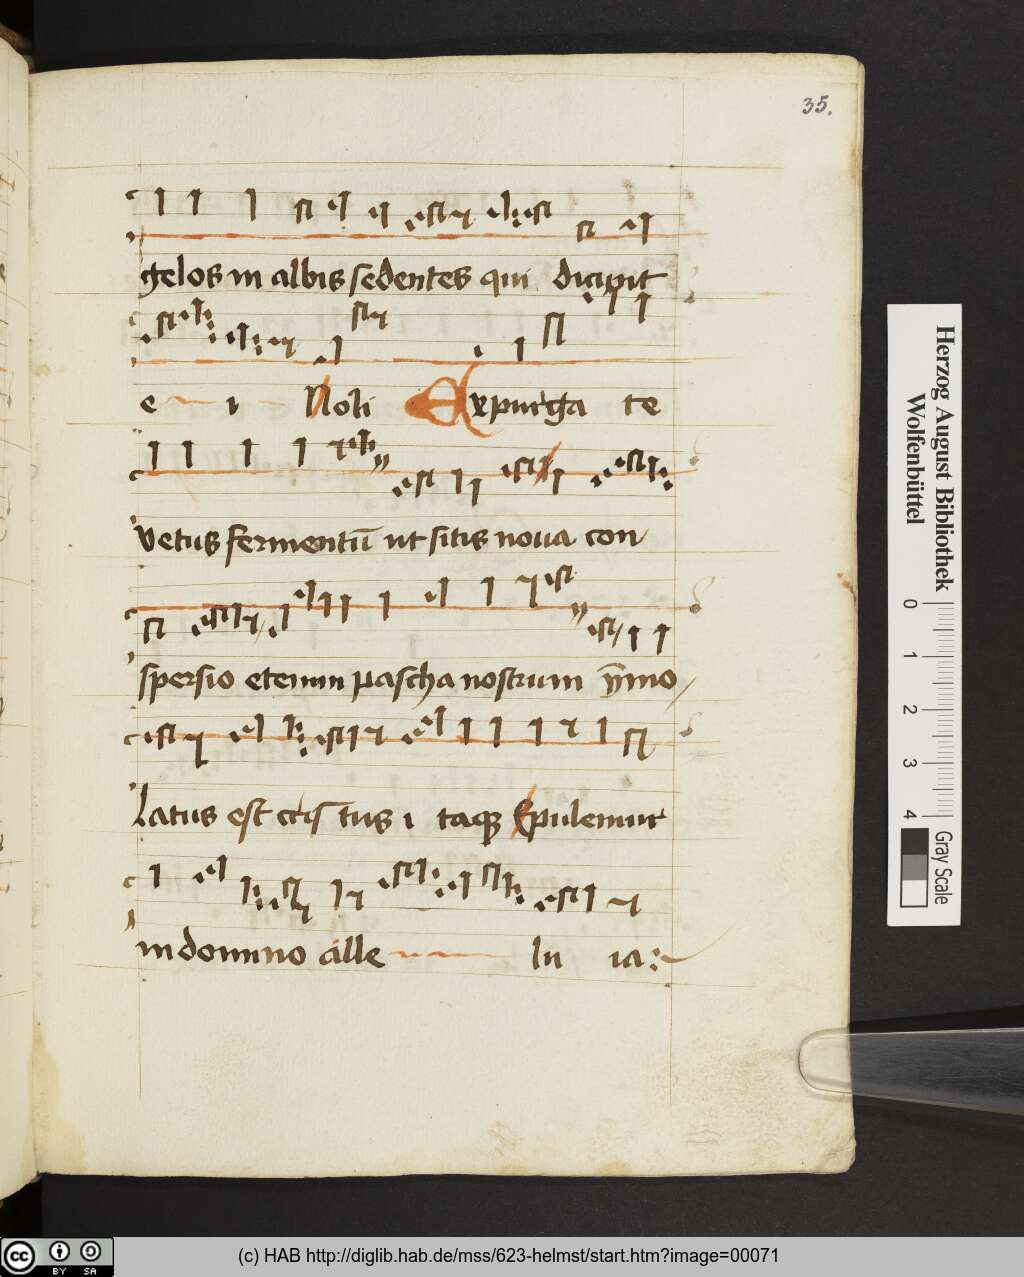 35.
gelos in albis sedentes qui dicunt
e i Noli Expurga te
vetus fermentū ut sitis noua con
spersio etenim pascha nostrum ȳmo
latus est cris tus i taq Epulemur
in domino alle lu ia:
Herzog August Bibliothek
Wolfenbüttel
0 1 2 3 4
Gray Scale
cc BY SA
(c) HAB http://diglib.hab.de/mss/623-helmst/start.htm?image=00071